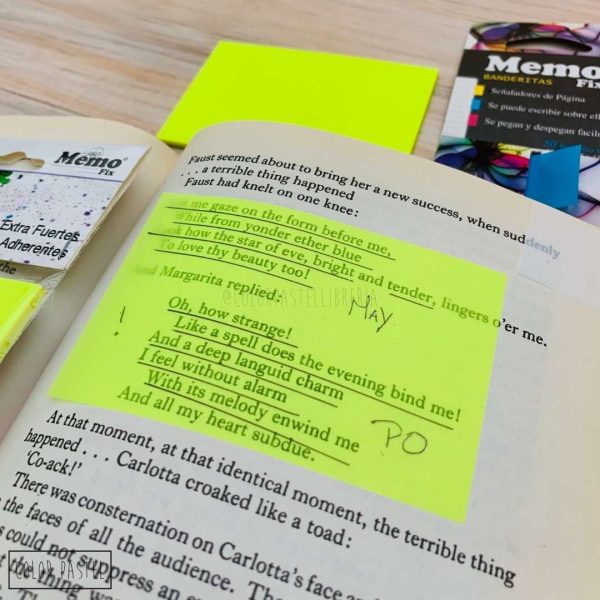 Memo
Fix
BANDERITAS
Señaladores de Página
Se puede escribir sobre ell
Se pegan y despegan fácilm
Memo
Fix
Extra Fuertes
Adherentes
the
Faust seemed about to bring her a new success, when suddenly
. . . a terrible thing happened
Faust had knelt on one knee:
me gaze on the form before me,
While from yonder ether blue
ook how the star of eve, bright and tender, lingers o'er me.
To love thy beauty too!
Margarita replied:
MAY
@COLORPASTELLIBRERIA
Oh, how strange!
Like a spell does the evening bind me!
And a deep languid charm
I feel without alarm
With its melody enwind me
And all my heart subdue.
!
PO
At that moment, at that identical moment, the terrible thing
happened . . . Carlotta croaked like a toad:
'Co-ack!'
There was consternation on Carlotta's face and
the faces of all the audience. The
could not suppress an
thing was
COLOR PASTEL